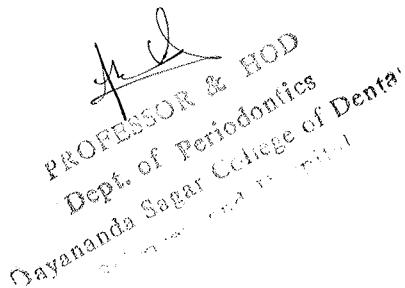 PROFESSOR & HOD
Dept. of Periodontics
Dayananda Sagar College of Denta
and